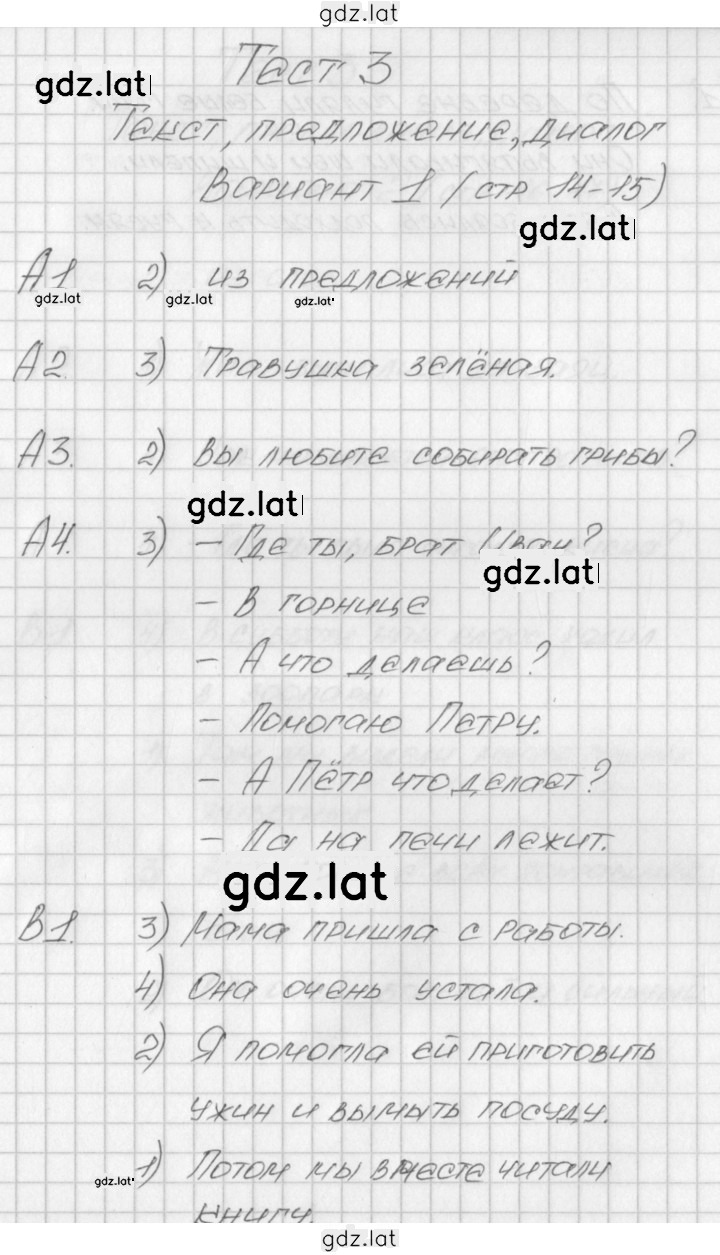 gdz.lat
Тест 3
gdz.lat
Текст, предложение, диалог
Вариант 1 (стр 14-15)
gdz.lat
А1 2) из предложений
gdz.lat gdz.lat gdz.lat
А2. 3) Травушка зелёная.
А3. 2) Вы любите собирать грибы?
gdz.lat
А4. 3) – Где ты, брат Иван?
gdz.lat
– В горнице
– А что делаешь?
– Помогаю Петру.
– А Пётр что делает?
– Да на печи лежит.
gdz.lat
В1. 3) Мама пришла с работы.
4) Она очень устала.
2) Я помогла ей приготовить
ужин и вымыть посуду.
gdz.lat 1) Потом мы вместе читали
книгу.
gdz.lat